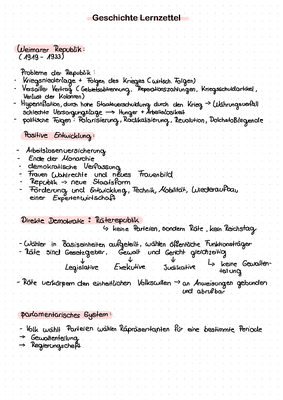 Geschichte Lernzettel
Weimarer Republik:
(1919 - 1933)
Probleme der Republik:
- Kriegsniederlage + Folgen des Krieges (wirtsch. Folgen)
- Versailler Vertrag (Gebietsabtrennung, Reparationszahlungen, Kriegsschuldartikel,
Verlust der Kolonien)
- Hyperinflation, durch hohe Staatsverschuldung durch den Krieg → Währungsverfall
schlechte Versorgungslage → Hunger + Arbeitslosigkeit
- politische Folgen: Polarisierung, Radikalisierung, Revolution, Dolchstoßlegende
Positive Entwicklung:
- Arbeitslosenversicherung
- Ende der Monarchie
- demokratische Verfassung
- Frauenwahlrecht und neues Frauenbild
- Republik → neue Staatsform
- Förderung und Entwicklung, Technik, Mobilität, Wiederaufbau,
einer Expertenwirtschaft
Direkte Demokratie: Räterepublik
↳ keine Parteien, sondern Räte, kein Reichstag
- Wähler in Basiseinheiten aufgeteilt, wählen öffentliche Funktionsträger
- Räte sind Gesetzgeber, Gewalt und Gericht gleichzeitig
↓ ↓ ↓ ↳ keine Gewalten-
Legislative Exekutive Judikative teilung
- Räte verkörpern den einheitlichen Volkswillen → an Anweisungen gebunden
und abrufbar
parlamentarisches System:
- Volk wählt Parteien wählen Repräsentanten für eine bestimmte Periode
→ Gewaltenteilung
→ Regierungschef